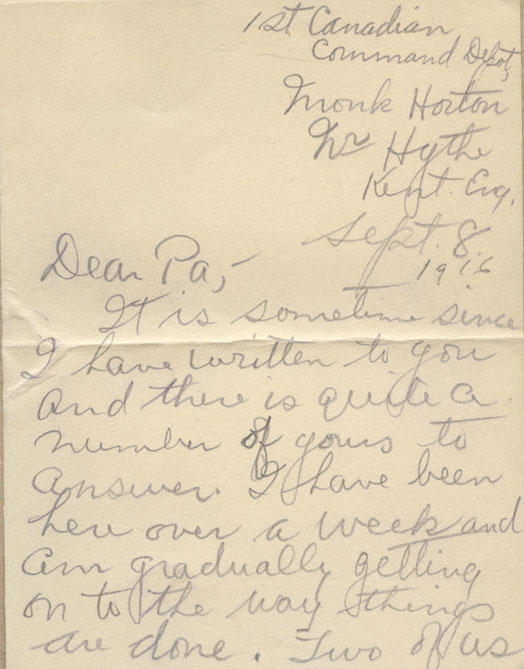 1st Canadian
Command Depot,
Monk Horton
Nr Hythe
Kent. Eng.
Sept. 8.
1916
Dear Pa,-
It is sometime since
I have written to you
and there is quite a
number of yours to
answer. I have been
here over a week and
am gradually getting
on to the way things
are done. Two of us